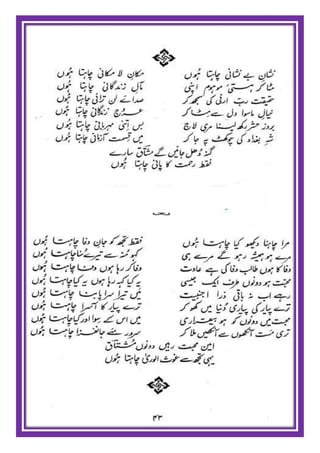 نشانِ بے نشانی چاہتا ہوں مکانِ لا مکانی چاہتا ہوں
مٹا کر ہستئ موہوم اپنی مآلِ زندگانی چاہتا ہوں
حقیقت ربِّ ارنی کی سمجھ کر صدائے لن ترانی چاہتا ہوں
خیالِ ماسوا دل سے ہٹا کر عروجِ زندگانی چاہتا ہوں
بروزِ حشر رکھ لینا مری لاج بس اتنی مہربانی چاہتا ہوں
شہِ بغداد کی چوکھٹ پہ جا کر میں قسمت آزمانی چاہتا ہوں
گنہ دُھل جائیں گے مشتاق سارے
فقط رحمت کا پانی چاہتا ہوں
مرا چاہنا دیکھو کیا چاہتا ہوں فقط تجھ کو جانِ وفا چاہتا ہوں
مرے ہو ہمیشہ رہو گے مرے ہی منہ سے تیرے سنا چاہتا ہوں
وفا کا ہوں طالب وفا کی ہے عادت وفا کر رہا ہوں وفا چاہتا ہوں
محبت ہو دونوں طرف ایک جیسی یہ کیا کہہ رہا ہوں یہ کیا چاہتا ہوں
رہے اب نہ باقی ذرا اجنبیت میں تیرا سراپا بنا چاہتا ہوں
ترے پیار کی پیاری دُنیا میں کھو کر ترے پیار کا آسرا چاہتا ہوں
محبت میں دونوں کو ہو بیقراری میں اس کے سوا اور کیا چاہتا ہوں
تری مست آنکھوں سے آنکھیں ملا کر سرورِ مئے جانفزا چاہتا ہوں
امین محبت رہیں دونوں مشتاق
یہی تجھ سے غوث الوریٰ چاہتا ہوں
۴۳